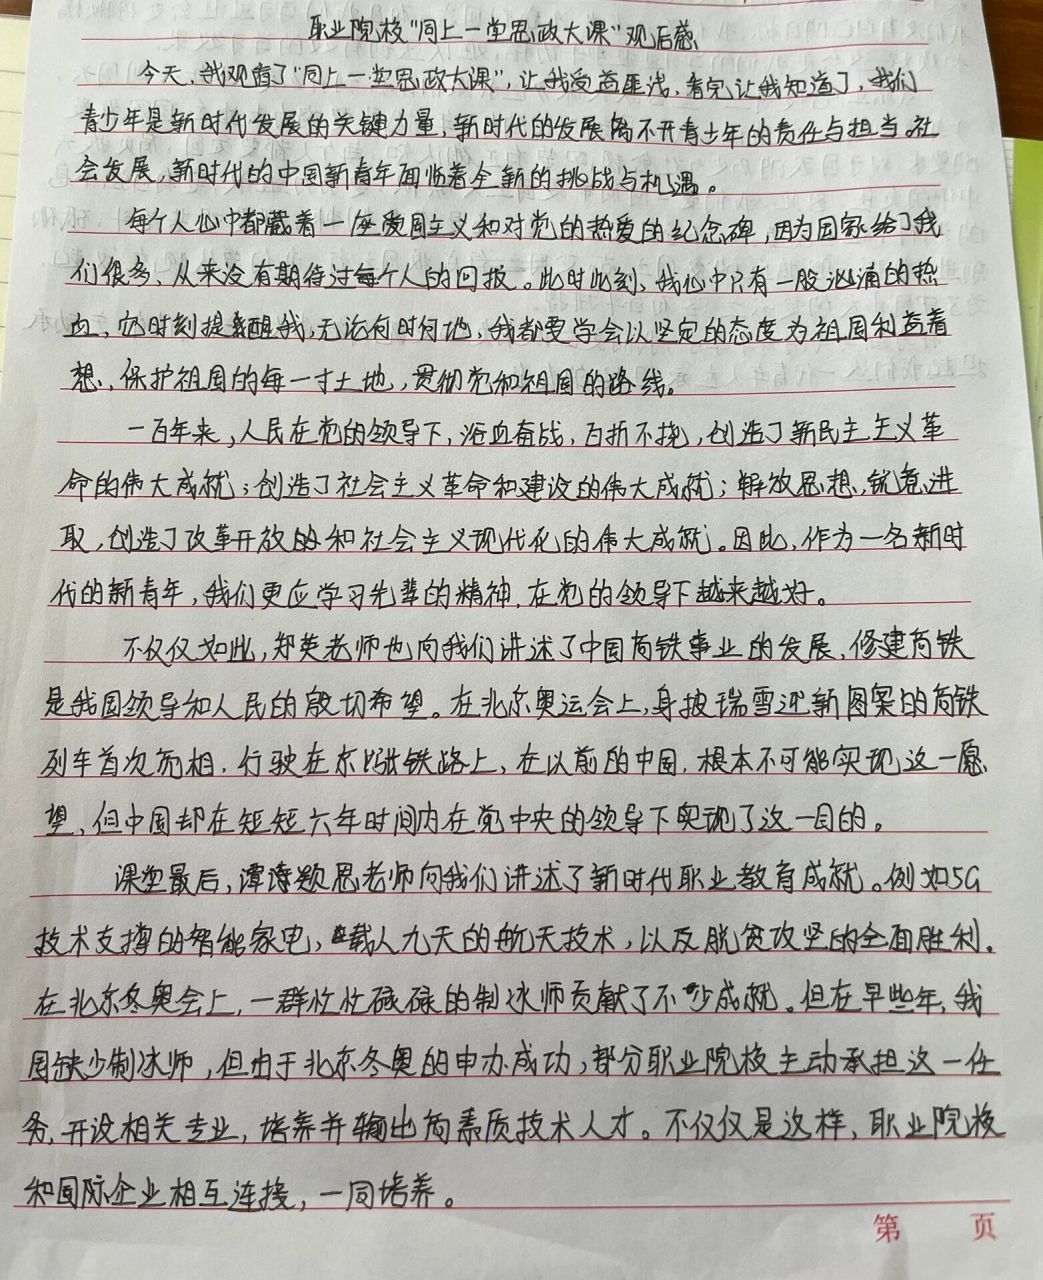 职业院校“同上一堂思政大课”观后感
今天，我观看了“同上一堂思政大课”，让我受益匪浅，看完让我知道了，我们
青少年是新时代发展的关键力量，新时代的发展离不开青少年的责任与担当。社
会发展，新时代的中国新青年面临着全新的挑战与机遇。
每个人心中都藏着一座爱国主义和对党的热爱的纪念碑，因为国家给了我
们很多，从来没有期待过每个人的回报。此时此刻，我心中只有一股汹涌的热
血，它时刻提醒我，无论何时何地，我都要学会以坚定的态度为祖国利益着
想，保护祖国的每一寸土地，贯彻党和祖国的路线。
一百年来，人民在党的领导下，浴血奋战，百折不挠，创造了新民主主义革
命的伟大成就；创造了社会主义革命和建设的伟大成就；解放思想，锐意进
取，创造了改革开放的和社会主义现代化的伟大成就。因此，作为一名新时
代的新青年，我们更应学习先辈的精神，在党的领导下越来越好。
不仅仅如此，郑英老师也向我们讲述了中国高铁事业的发展，修建高铁
是我国领导和人民的殷切希望。在北京奥运会上，身披瑞雪迎新图案的高铁
列车首次亮相，行驶在京张铁路上，在以前的中国，根本不可能实现这一愿
望，但中国却在短短六年时间内在党中央的领导下实现了这一目的。
课堂最后，谭诗颖思老师向我们讲述了新时代职业教育成就。例如5G
技术支撑的智能家电，载人九天的航天技术，以及脱贫攻坚的全面胜利。
在北京冬奥会上，一群忙忙碌碌的制冰师贡献了不少成就。但在早些年，我
国缺少制冰师，但由于北京冬奥的申办成功，部分职业院校主动承担这一任
务，开设相关专业，培养并输出高素质技术人才。不仅仅是这样，职业院校
和国际企业相互连接，一同培养。
第 页